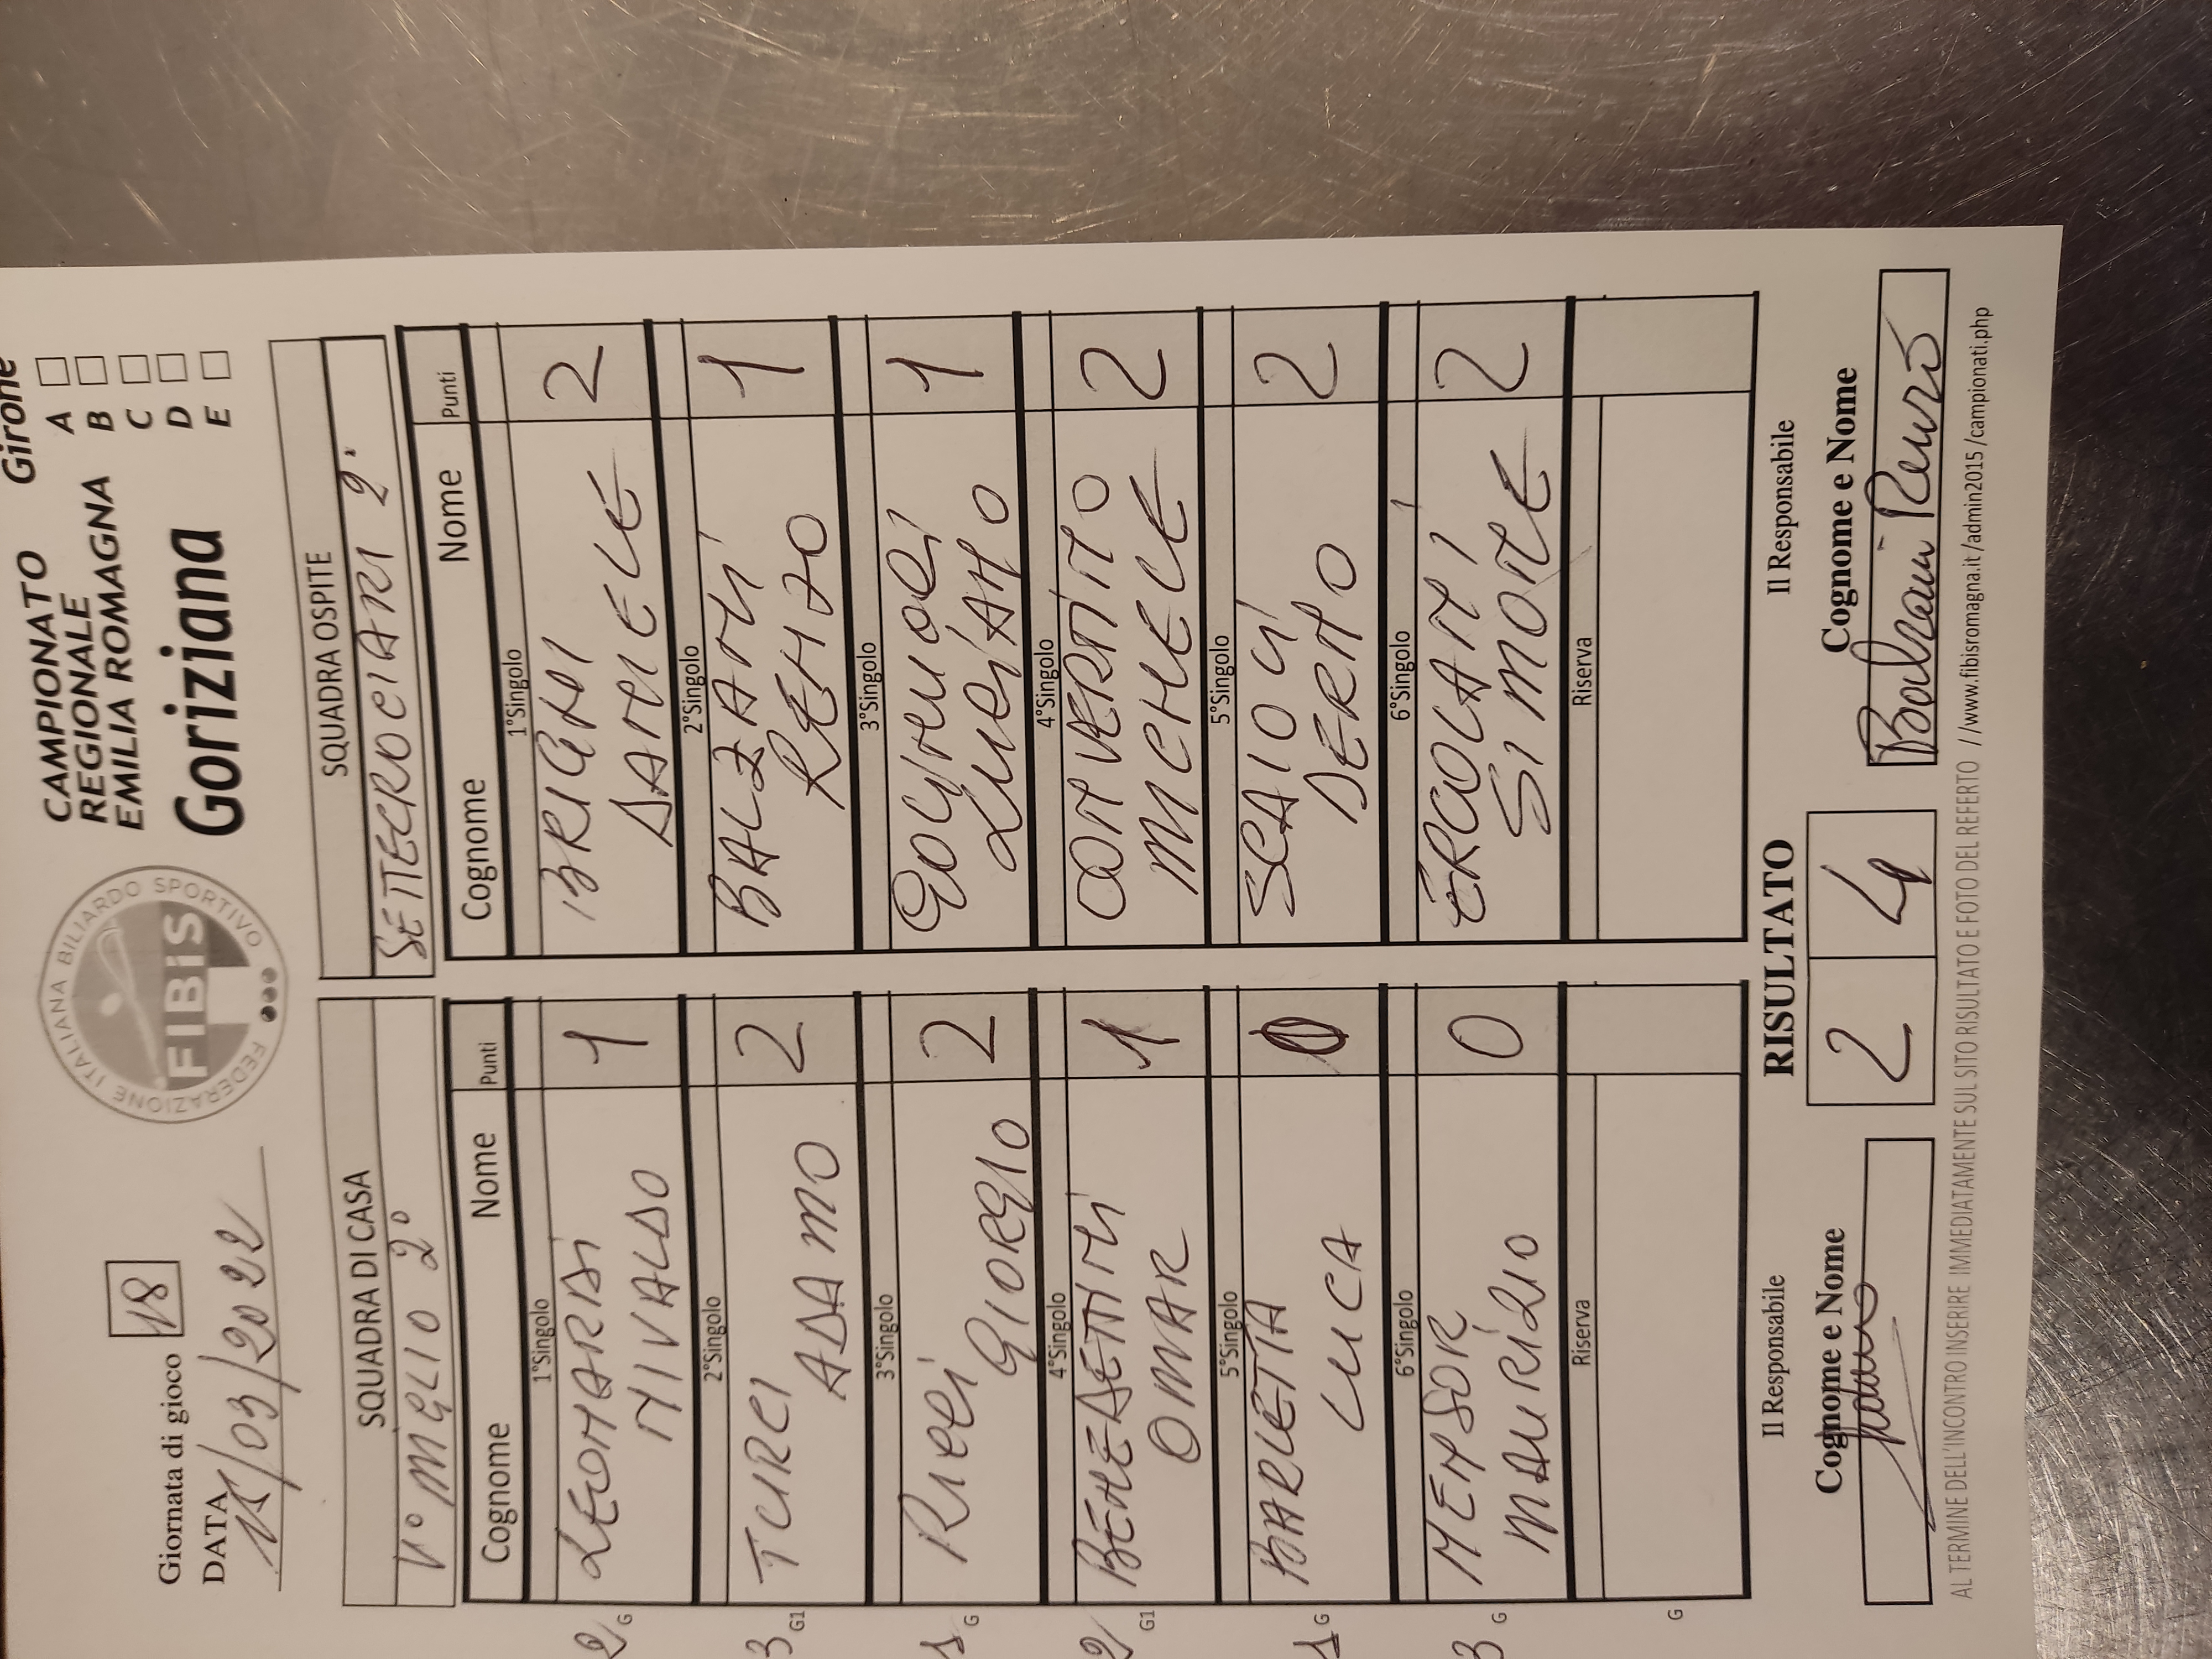 Giornata di gioco 18
DATA 15/03/2022
FEDERAZIONE ITALIANA BILIARDO SPORTIVO
FIBiS
CAMPIONATO
REGIONALE
EMILIA ROMAGNA
Goriziana
Girone
A
B
C
D
E
SQUADRA DI CASA
V° MGLIO 2°
Cognome Nome Punti
1°Singolo
LEONARDI
NIVALDO 1
2 G
2°Singolo
TURCI
ADAMO 2
3 G1
3°Singolo
RICCI
GIORGIO 2
1 G
4°Singolo
BENEDETTINI
OMAR 1
2 G1
5°Singolo
BARLETTA
LUCA 0
1 G
6°Singolo
MAURIZIO 0
3 G
Riserva
G
SQUADRA OSPITE
SETTECROCIARI 2°
Cognome Nome Punti
1°Singolo
BRIGHI
DANIELE 2
2°Singolo
BALZANI
RENZO 1
3°Singolo
LUCIANO 1
4°Singolo
CONVERTITO
MICHELE 2
5°Singolo
DERNO 2
6°Singolo
ERCOLANI
SIMONE 2
Riserva
Il Responsabile
Cognome e Nome
RISULTATO
2 4
Il Responsabile
Cognome e Nome
Balzani Renzo
AL TERMINE DELL'INCONTRO INSERIRE IMMEDIATAMENTE SUL SITO RISULTATO E FOTO DEL REFERTO //www.fibisromagna.it/admin2015/campionati.php